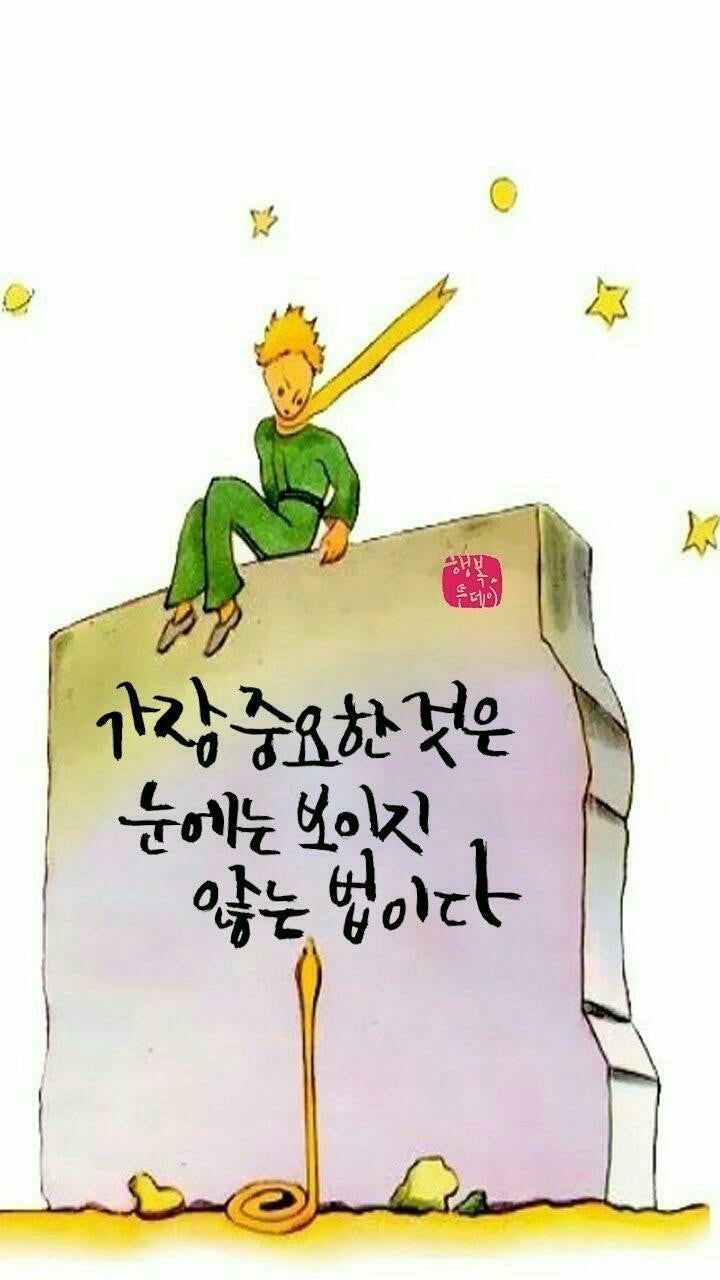 행복
투데이
가장 중요한 것은
눈에는 보이지
않는 법이다